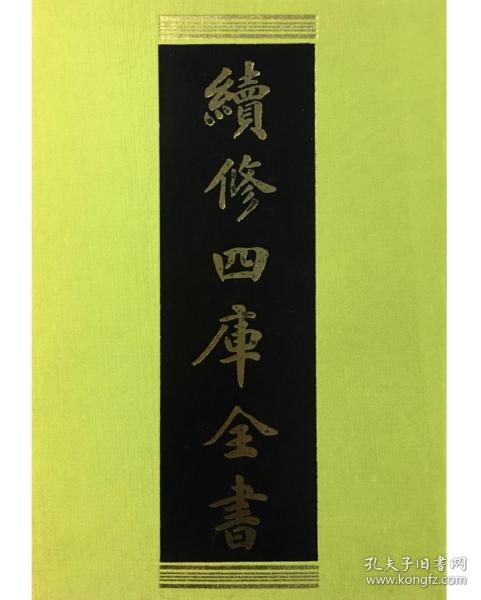 續修四庫全書
孔夫子旧书网
www.kongfz.com